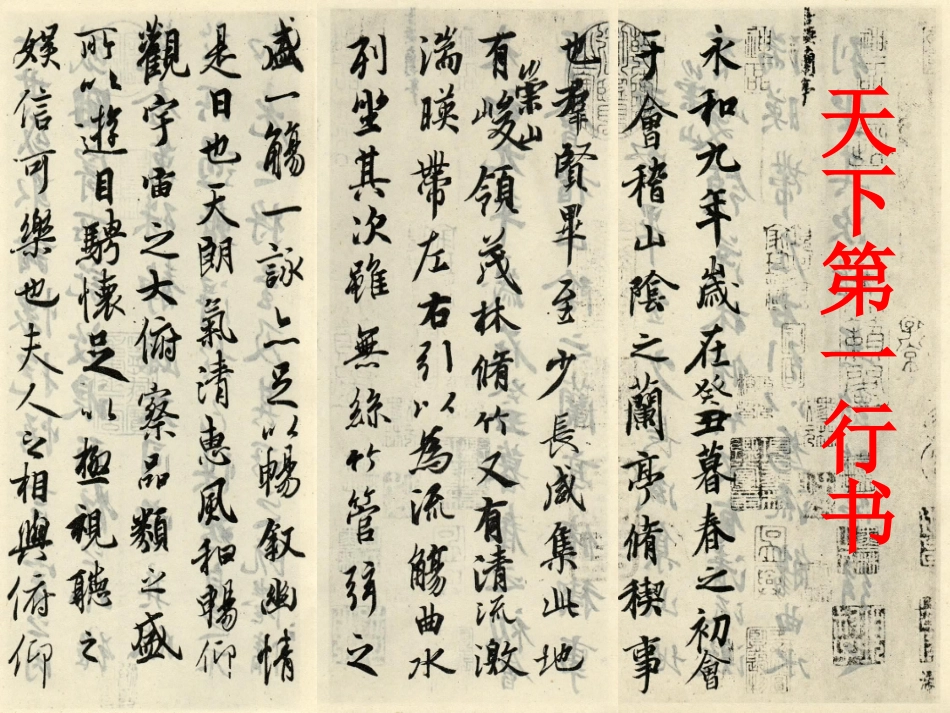 天下第一行书
永和九年歲在癸丑暮春之初會
于會稽山陰之蘭亭脩稧事
也羣賢畢至少長咸集此地
有崇山峻領茂林脩竹又有清流激
湍暎帶左右引以為流觴曲水
列坐其次雖無絲竹管弦之
盛一觴一詠亦足以暢敘幽情
是日也天朗氣清惠風和暢仰
觀宇宙之大俯察品類之盛
所以遊目騁懷足以極視聽之
娛信可樂也夫人之相與俯仰